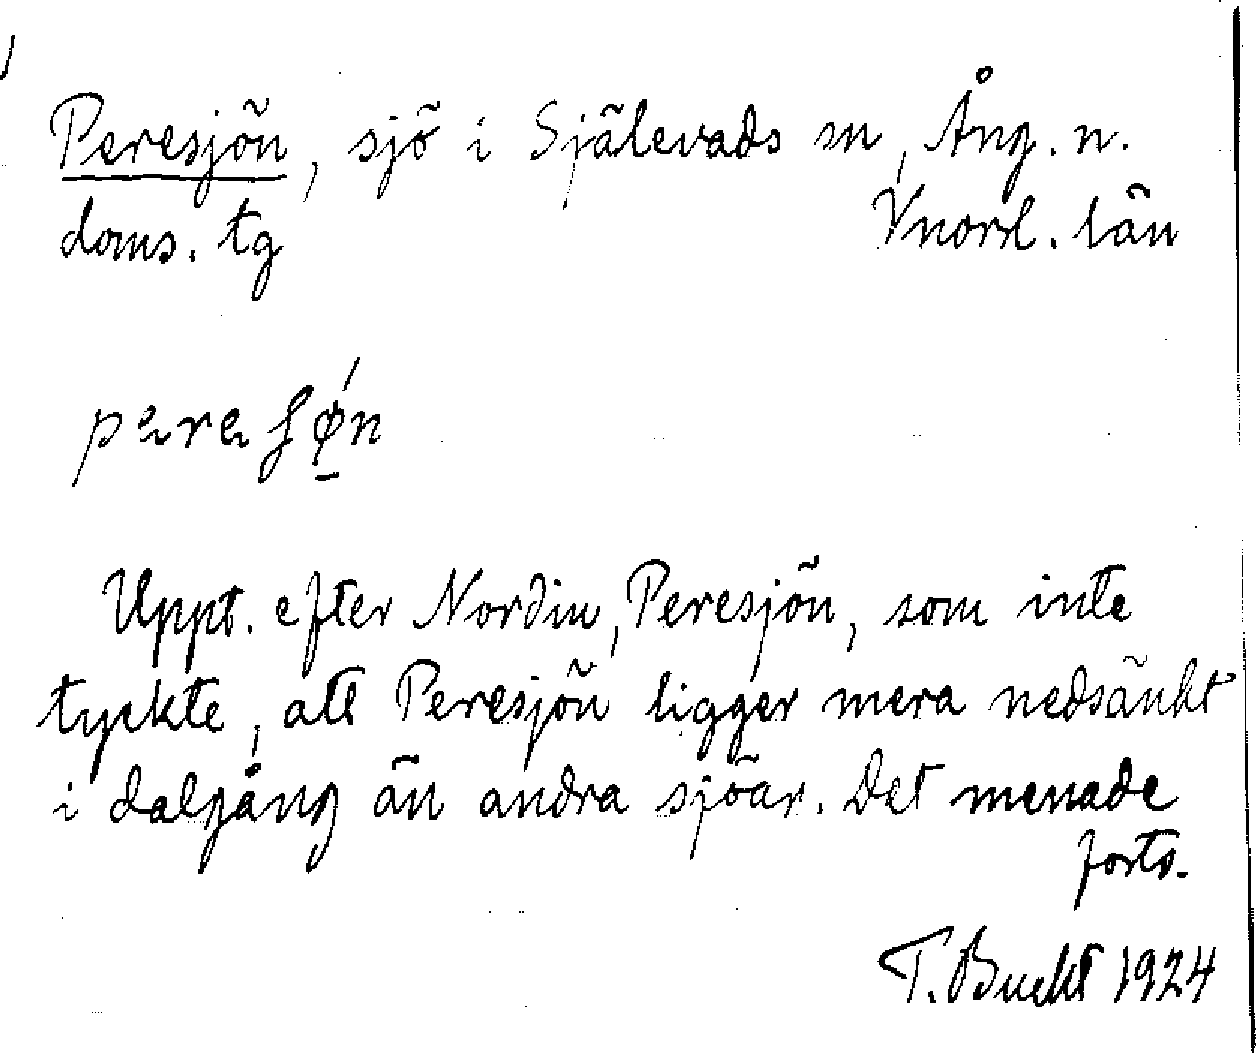 Peresjön, sjö i Själevads sn, Ång. n.
doms. tg Vnorrl. län
Uppt. efter Nordin, Peresjön, som inte
tyckte, att Peresjön ligger mera nedsänkt
i dalgång än andra sjöar. Det menade
forts.
T. Bucht 1924